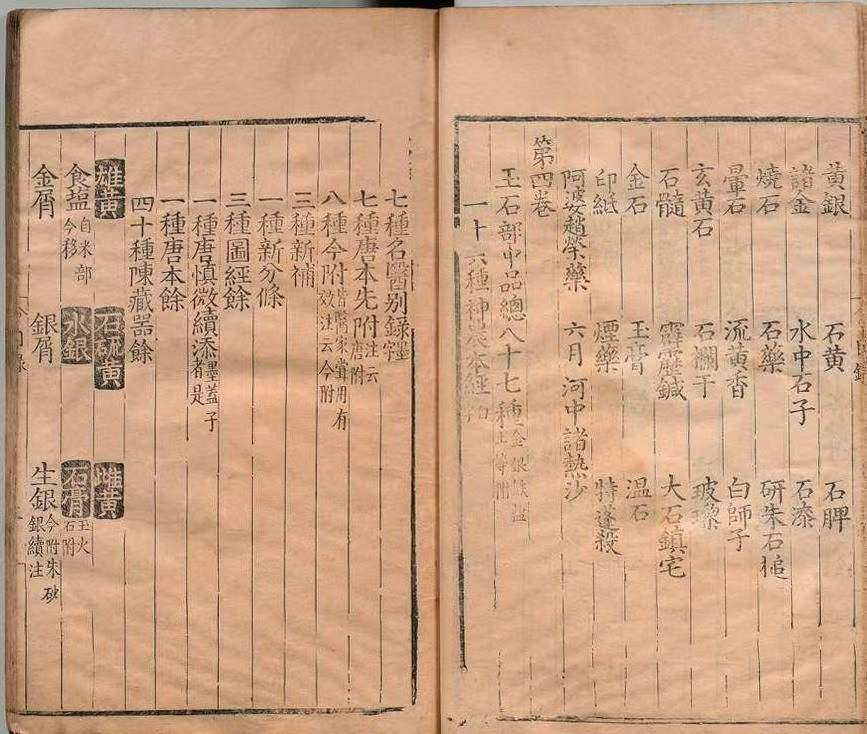 黃銀 石黃 石脾
諸金 水中石子 石漆
燒石 石藥 研朱石槌
暈石 流黃香 白師子
玄黃石 石欄干 玻瓈
石髓 霹靂鍼 大石鎮宅
金石 玉膏 溫石
印紙 煙藥 特蓬殺
阿婆趙榮藥 六月河中諸熱沙
第四卷
玉石部中品總八十七種金銀鐵鹽土等附
一十六種神農本經
七種名醫別錄墨字
七種唐本先附注云唐附
八種今附皆醫家嘗用有效注云今附
三種新補
一種新分條
三種圖經餘
一種唐慎微續添墨蓋子者是
一種唐本餘
四十種陳藏器餘
雄黃 石硫黃 雌黃
食塩自米部今移 水銀 石膏玉火石附
金屑 銀屑 生銀今附朱砂銀續注